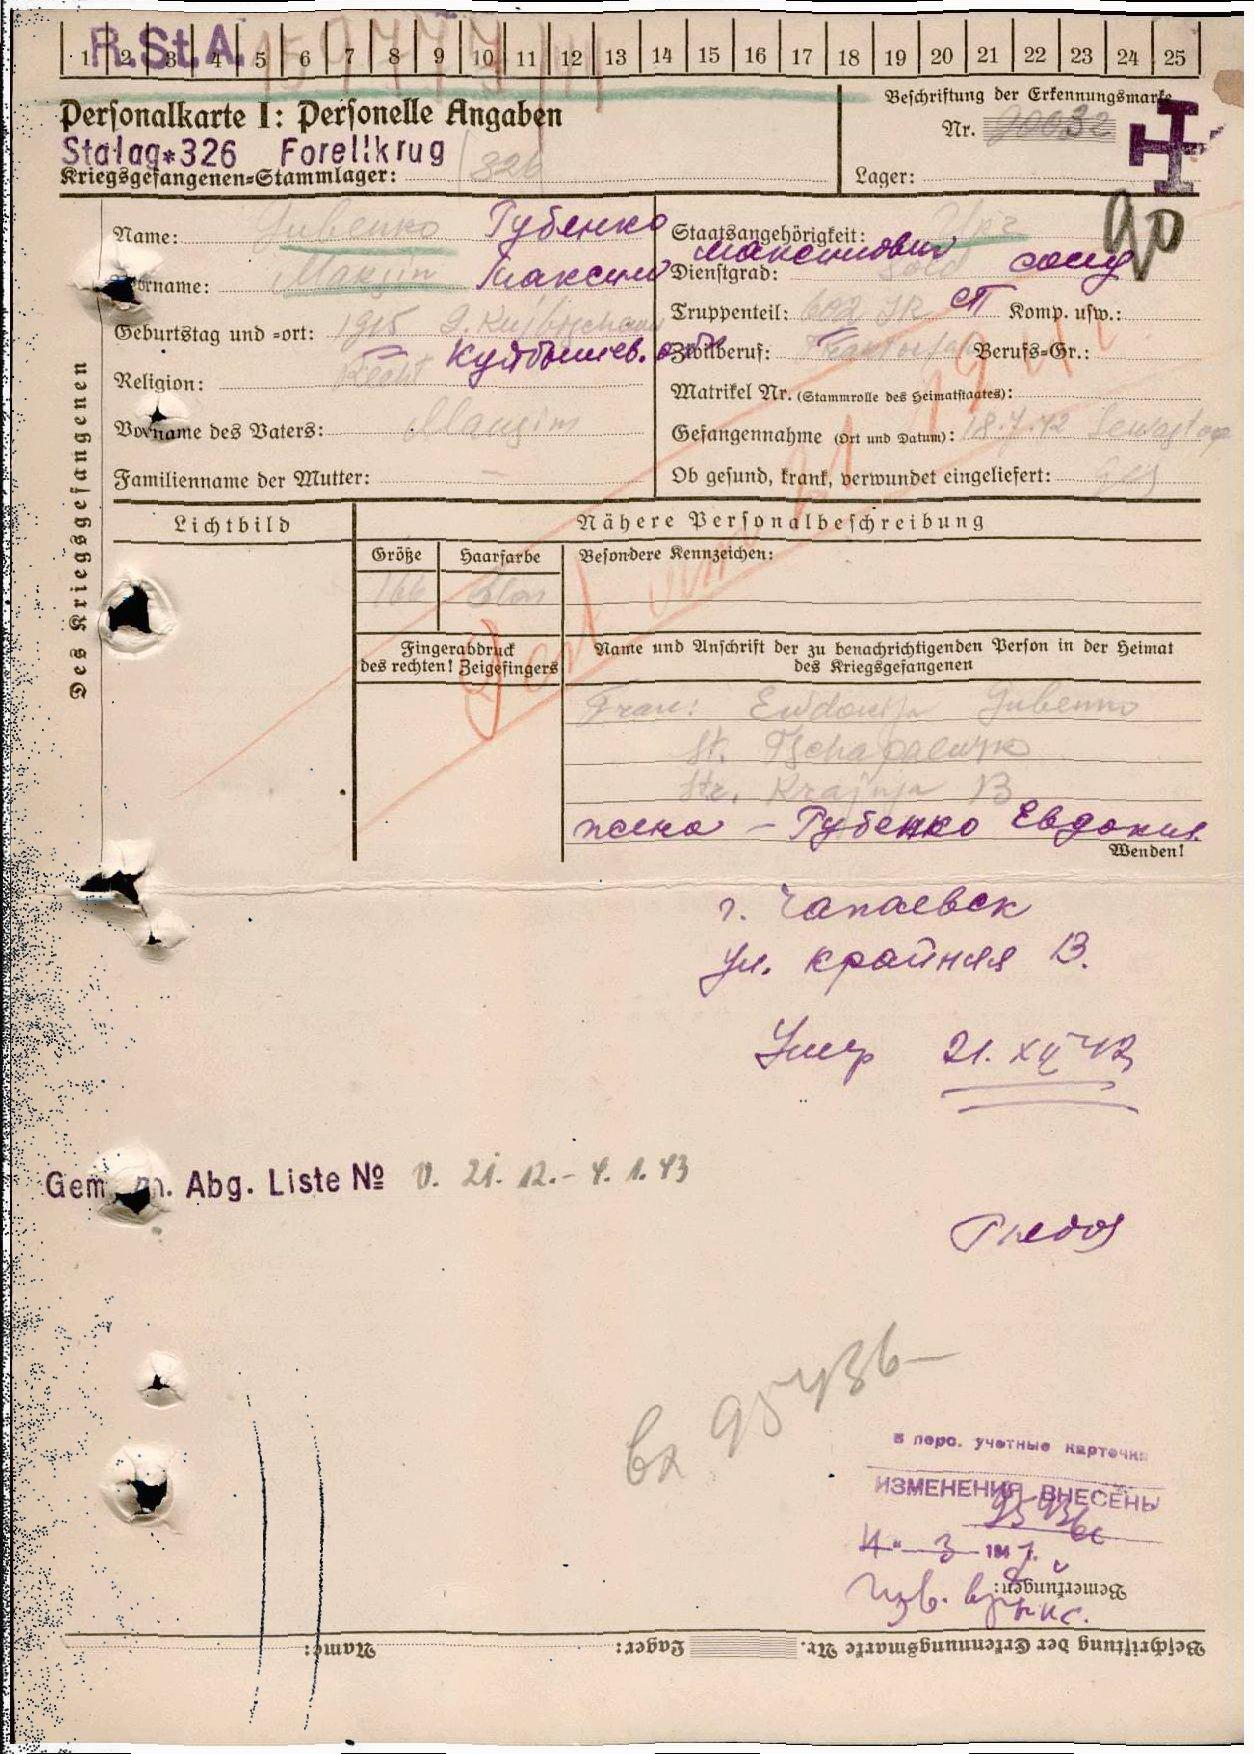 R.St.A.
1 2 3 4 5 6 7 8 9 10 11 12 13 14 15 16 17 18 19 20 21 22 23 24 25
Personalkarte I: Personelle Angaben
Beschriftung der Erkennungsmarke
Nr. 90032
Stalag*326 Forellkrug
Kriegsgefangenen=Stammlager: 326
Lager:
90
Des Kriegsgefangenen
Name: Gubenko Губенко
Vorname: Maksim Максим Максимович
Geburtstag und =ort: 1915
Куйбышев. обл
Religion:
Vorname des Vaters: Maksim
Familienname der Mutter: –
Staatsangehörigkeit:
Dienstgrad: Sold солд
Truppenteil: 602 JR сп Komp. usw.:
Zivilberuf: Berufs=Gr.:
Matrikel Nr. (Stammrolle des Heimatstaates):
Gefangennahme (Ort und Datum): 18.7.42 Sewastop
Ob gesund, krank, verwundet eingeliefert: Ges
Lichtbild
Nähere Personalbeschreibung
Größe Haarfarbe Besondere Kennzeichen:
166 Blon
Fingerabdruck
des rechten! Zeigefingers
Name und Anschrift der zu benachrichtigenden Person in der Heimat
des Kriegsgefangenen
Frau: Ewdokija Gubenko
St. Tschapaewsk
Str. Krajnja 13
жена – Губенко Евдокия
Wenden!
г. Чапаевск
ул. Крайняя 13.
Умер 21.XII 42
Gem. Abg. Liste № v. 21.12.- 4.1.43
вх 95436
в перс. учетные карточки
ИЗМЕНЕНИЯ ВНЕСЕНЫ
4. 3 1947.
Bemerkungen:
Beschriftung der Erkennungsmarke Nr. Lager: Name: